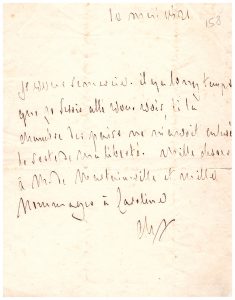 10 mai 1821
158
je vous remercie. il y a longtemps
que je serois allé vous voir si la
chambre des pairs ne m'avoit enlevé
le reste de ma liberté. mille choses
à M. de Montainville et mille
hommages à